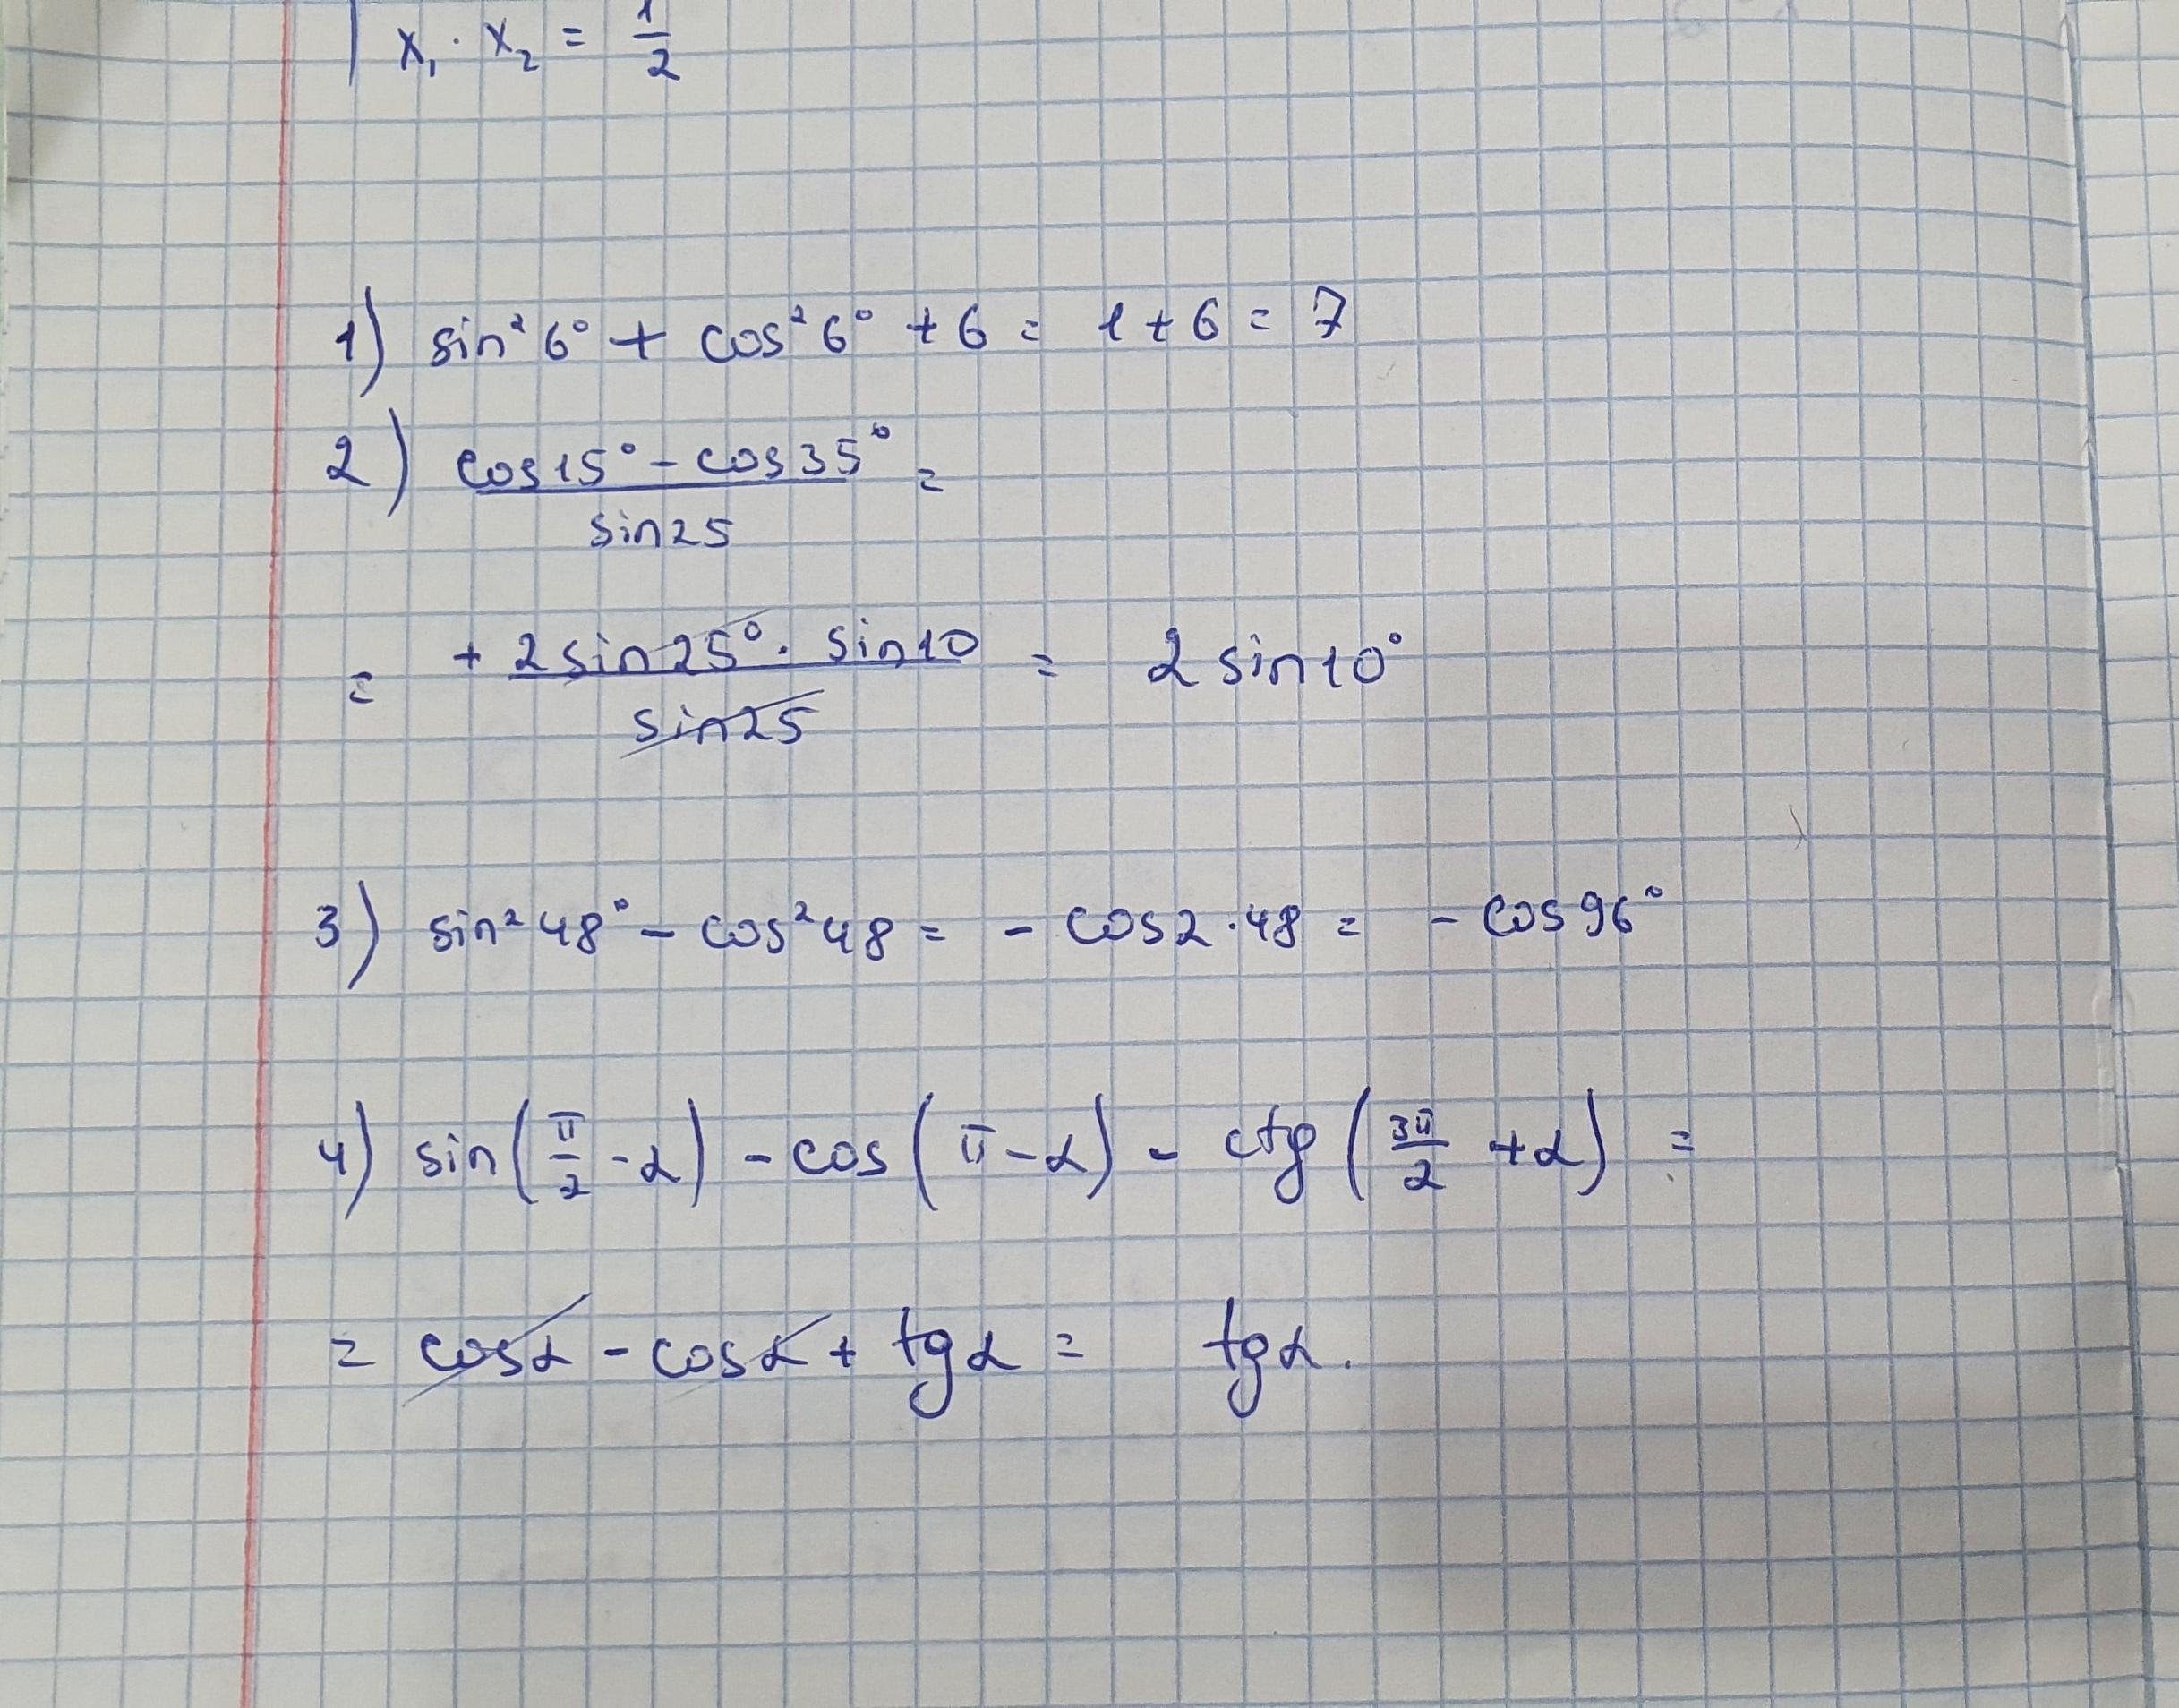 x₁ · x₂ = 1/2
1) sin²6° + cos²6° + 6 = 1 + 6 = 7
2) (cos15° - cos35°)/sin25 =
= + (2sin25° · sin10)/sin25 = 2sin10°
3) sin²48° - cos²48 = - cos2·48 = - cos96°
4) sin(π/2 - α) - cos(π - α) - ctg(3π/2 + α) =
= cosα - cosα + tgα = tgα.